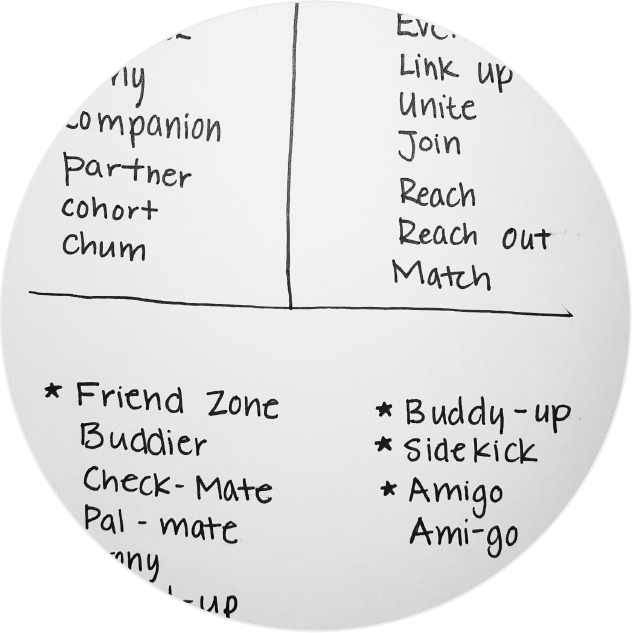 Companion
partner
cohort
Chum
Link up
Unite
Join
Reach
Reach out
Match
* Friend Zone
Buddier
Check-Mate
Pal-mate
* Buddy-up
* Sidekick
* Amigo
Ami-go